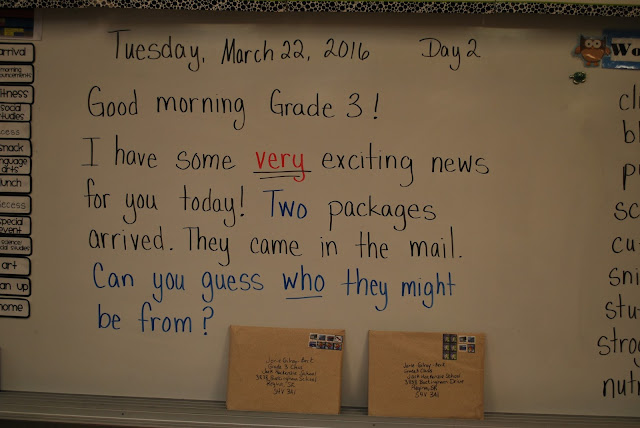 Tuesday, March 22, 2016 Day 2
Good morning Grade 3!
I have some very exciting news
for you today! Two packages
arrived. They came in the mail.
Can you guess who they might
be from?
arrival
morning
fitness
social
studies
recess
snack
language
arts
lunch
recess
special
event
science/
social studies
art
home
Wo
cl
bl
sc
cu
sni
stu
strog
nutr
Grade 3 Class
Regina, SK
Regina, SK